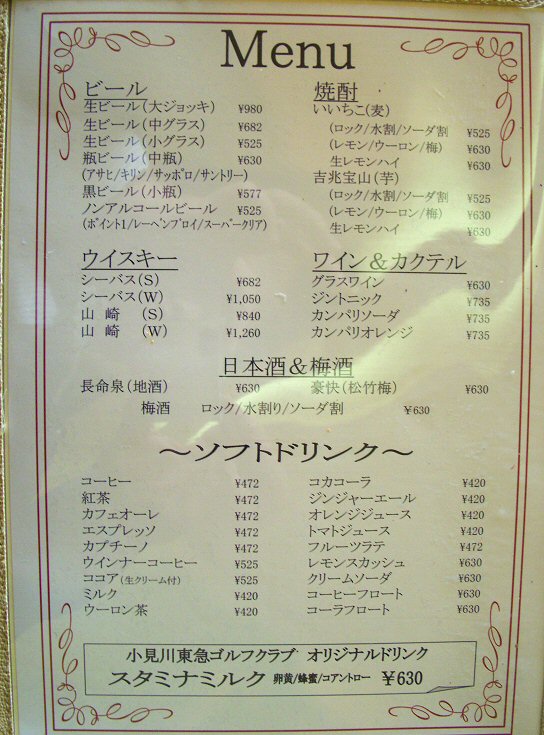 Menu
ビール
生ビール(大ジョッキ) ¥980
生ビール(中グラス) ¥682
生ビール(小グラス) ¥525
瓶ビール(中瓶) ¥630
(アサヒ/キリン/サッポロ/サントリー)
黒ビール(小瓶) ¥577
ノンアルコールビール ¥525
(ポイント1/レーベンブロイ/スーパークリア)
焼酎
いいちこ(麦)
(ロック/水割/ソーダ割 ¥525
(レモン/ウーロン/梅) ¥630
生レモンハイ ¥630
吉兆宝山(芋)
(ロック/水割/ソーダ割 ¥525
(レモン/ウーロン/梅) ¥630
生レモンハイ ¥630
ウイスキー
シーバス(S) ¥682
シーバス(W) ¥1,050
山 崎 (S) ¥840
山 崎 (W) ¥1,260
ワイン&カクテル
グラスワイン ¥630
ジントニック ¥735
カンパリソーダ ¥735
カンパリオレンジ ¥735
日本酒&梅酒
長命泉(地酒) ¥630 豪快(松竹梅) ¥630
梅酒 ロック/水割り/ソーダ割 ¥630
～ソフトドリンク～
コーヒー ¥472
紅茶 ¥472
カフェオーレ ¥472
エスプレッソ ¥472
カプチーノ ¥472
ウインナーコーヒー ¥525
ココア(生クリーム付) ¥525
ミルク ¥420
ウーロン茶 ¥420
コカコーラ ¥420
ジンジャーエール ¥420
オレンジジュース ¥420
トマトジュース ¥420
フルーツラテ ¥472
レモンスカッシュ ¥630
クリームソーダ ¥630
コーヒーフロート ¥630
コーラフロート ¥630
小見川東急ゴルフクラブ オリジナルドリンク
スタミナミルク 卵黄/蜂蜜/コアントロー ¥630